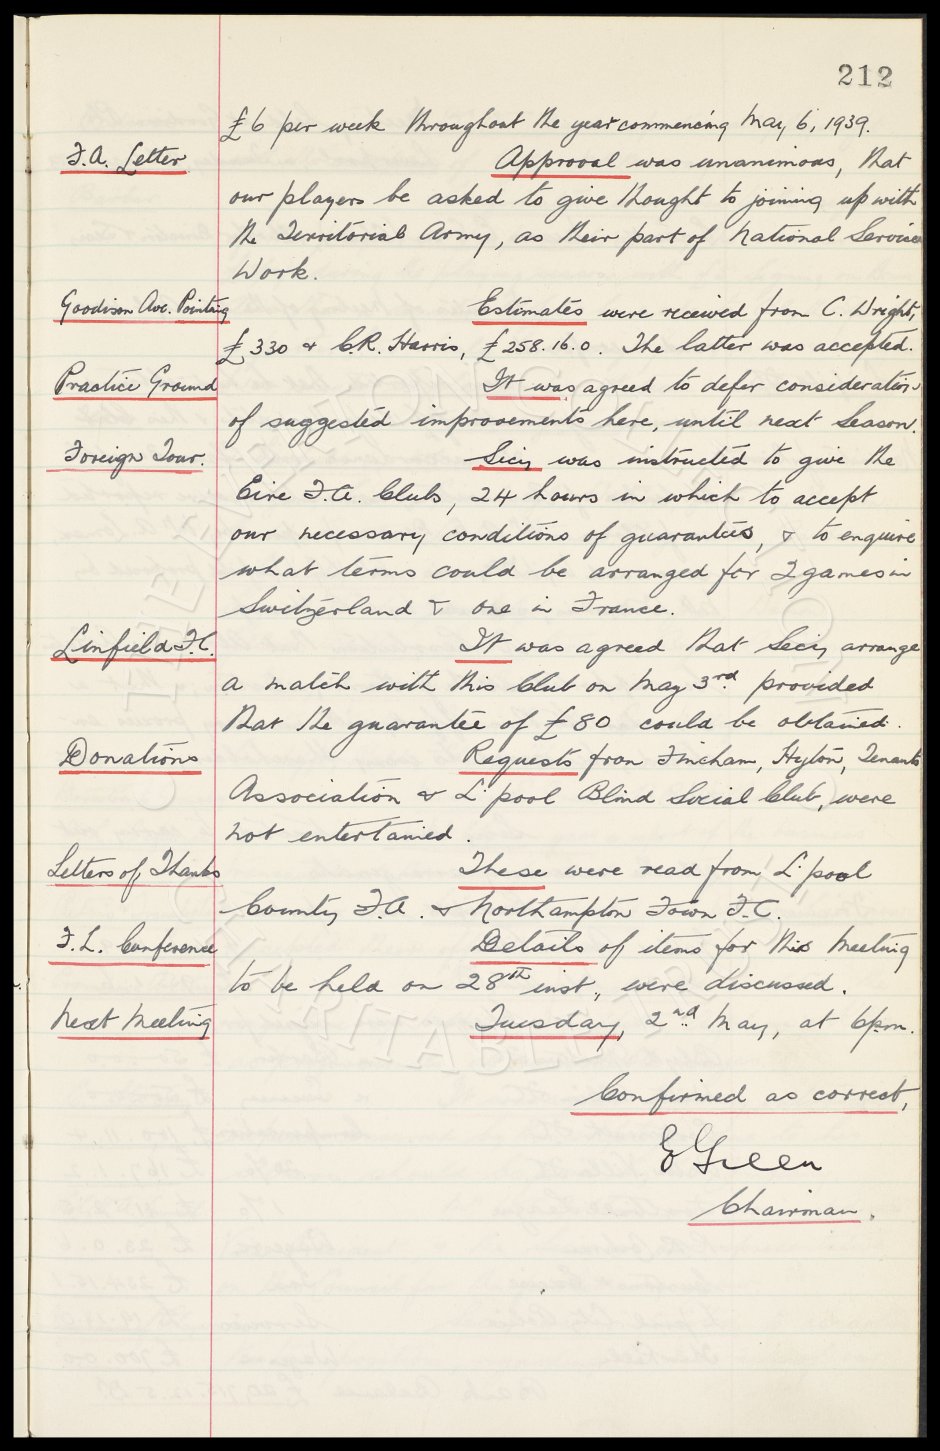 212
£6 per week throughout the year commencing May 6, 1939.
F.A. Letter
Approval was unanimous, that
our players be asked to give thought to joining up with
the Territorial Army, as their part of National Service
Work.
Goodison Ave. Pointing
Estimates were received from C. Wright,
£330 & C.R. Harris, £258.16.0. The latter was accepted.
Practice Ground
It was agreed to defer consideration
of suggested improvements here, until next Season.
Foreign Tour.
Secy was instructed to give the
Eire F.A. Clubs, 24 hours in which to accept
our necessary conditions of guarantees, & to enquire
what terms could be arranged for 2 games in
Switzerland & one in France.
Linfield F.C.
It was agreed that Secy arrange
a match with this Club on May 3rd. provided
that the guarantee of £80 could be obtained.
Donations
Requests from Fincham, Hyton, Tenants
Association & L'pool Blind Social Club, were
not entertained.
Letters of Thanks
These were read from L'pool
County F.A. & Northampton Town F.C.
F.L. Conference
Details of items for this Meeting
to be held on 28th inst., were discussed.
Next Meeting
Tuesday, 2nd May, at 6p.m.
Confirmed as correct,
E Green
Chairman.